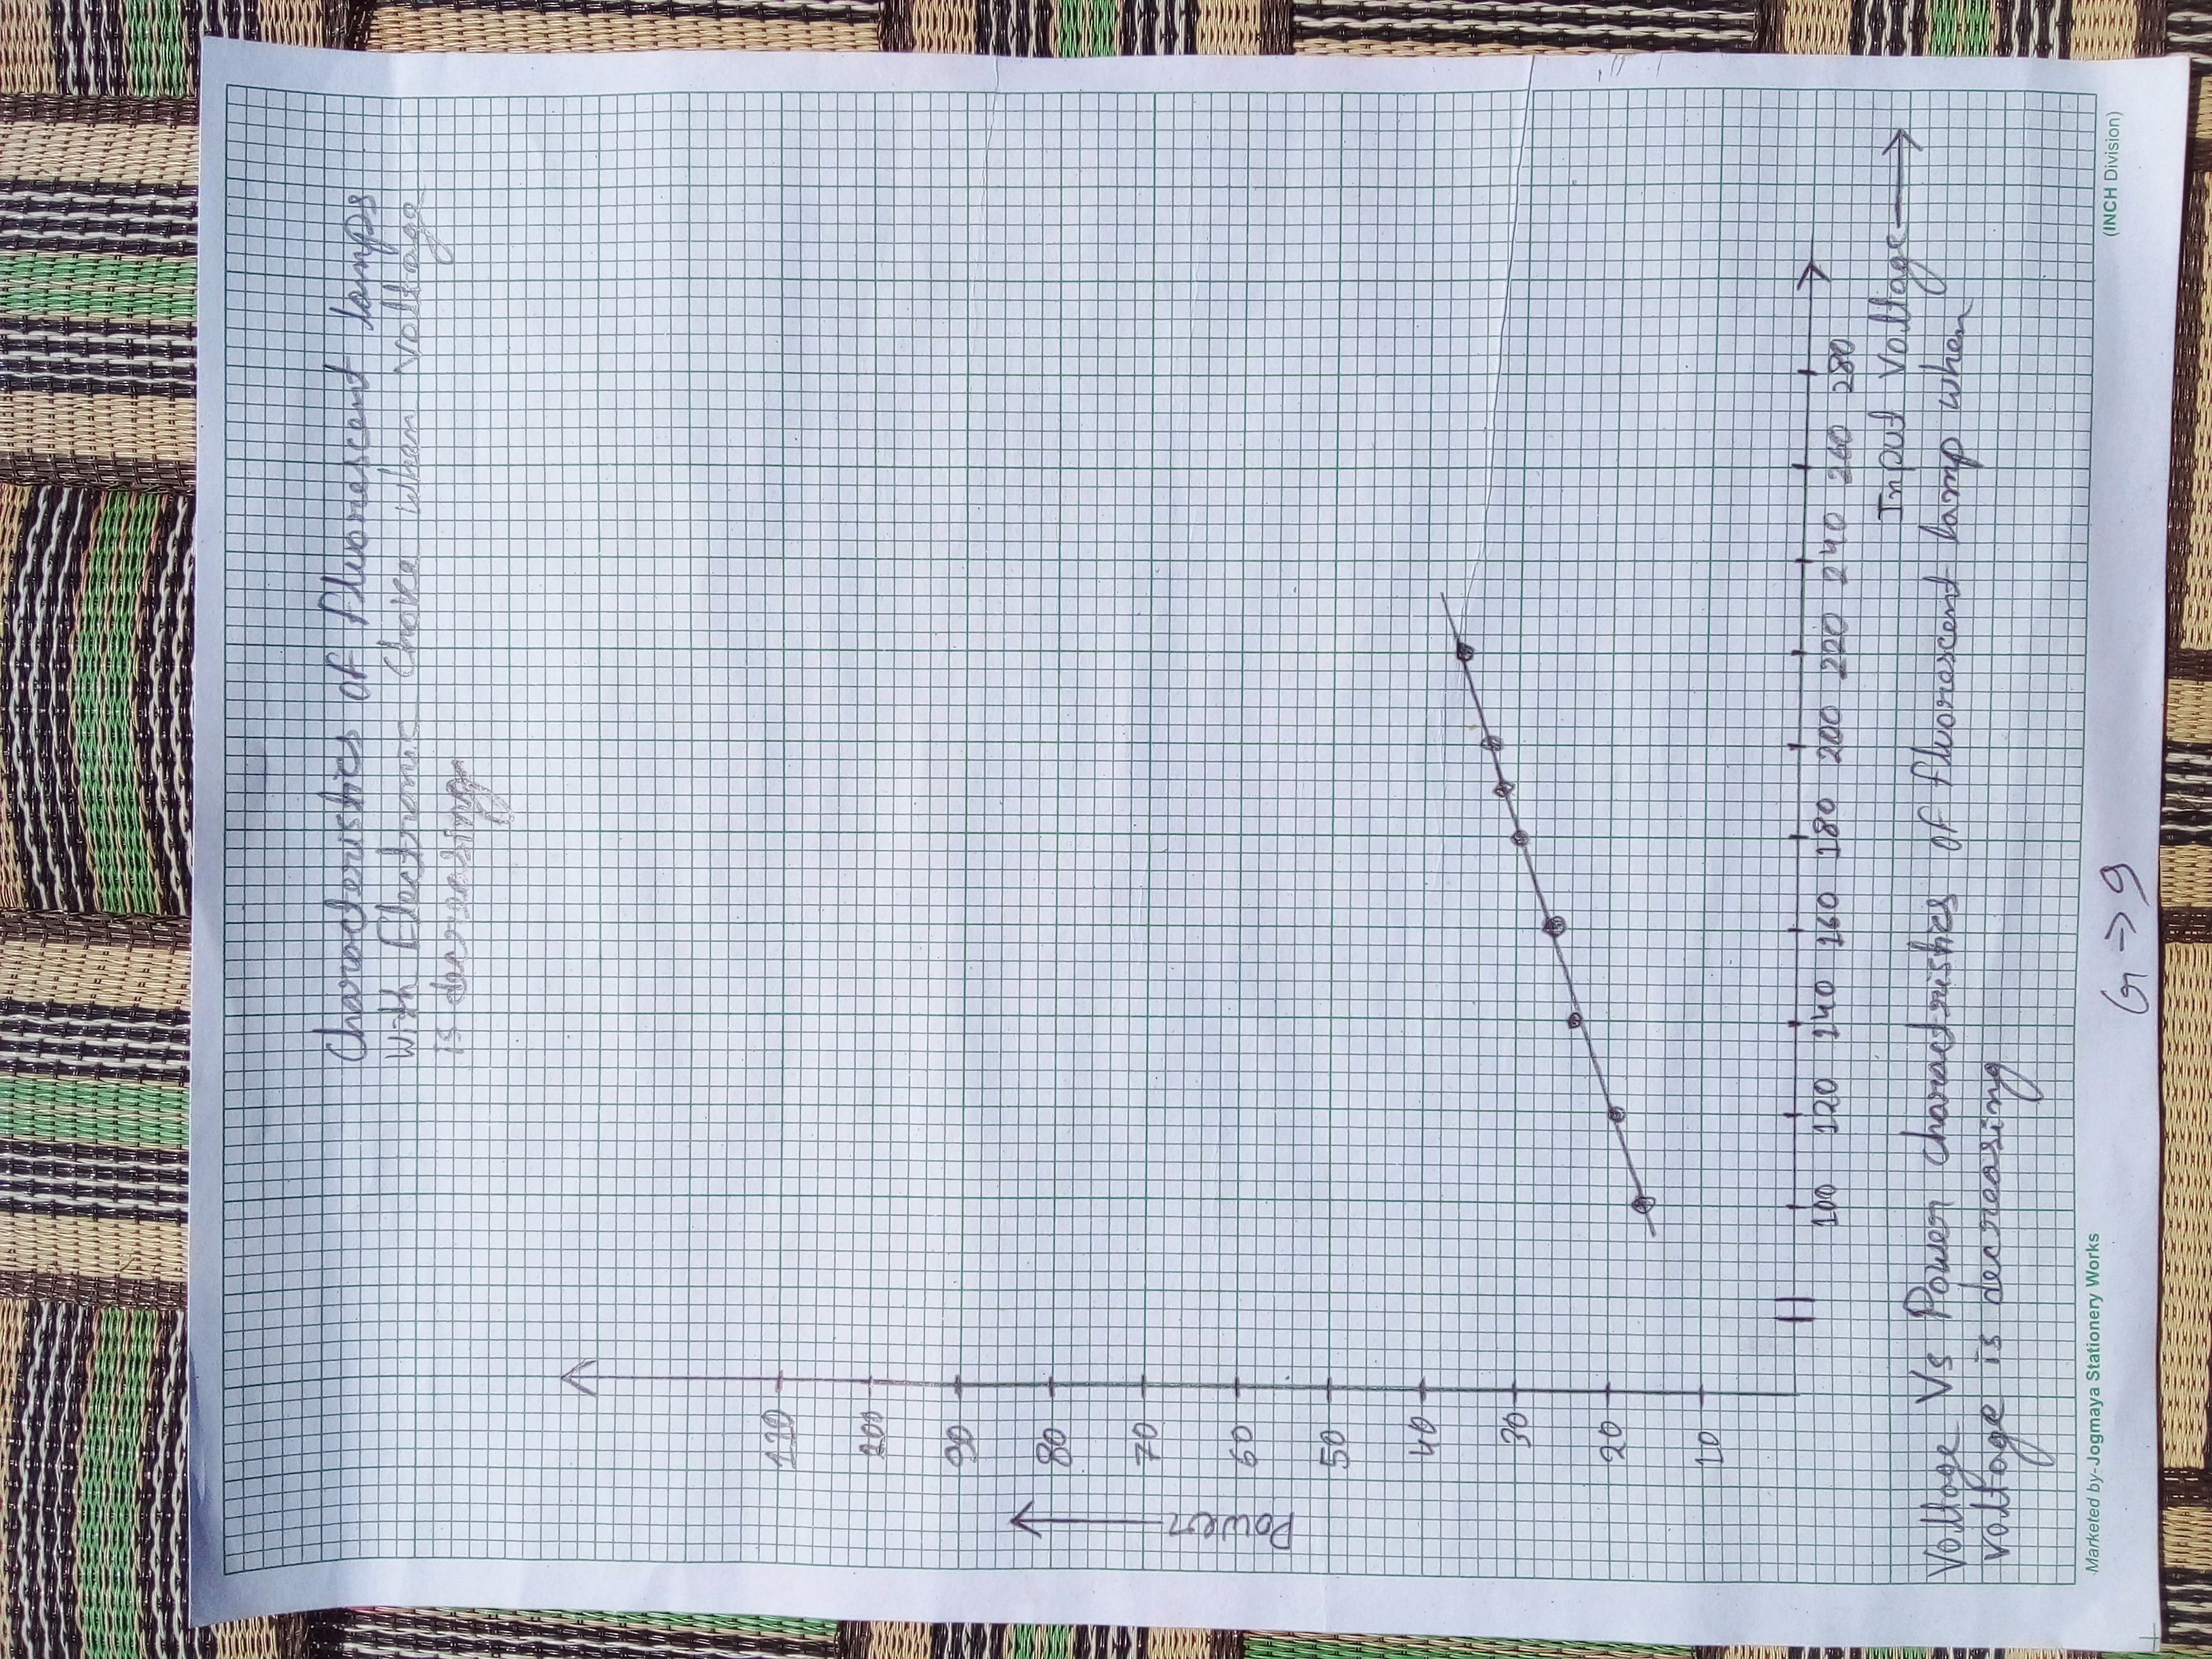 Characteristics of fluorescent lamps
with Electronic Choke when voltage
is decreasing
110
200
90
80
70
60
50
40
30
20
10
Power
100 120 140 160 180 200 220 240 260 280
Input Voltage
Voltage Vs Power charactristics of fluorescent lamp when
voltage is decreasing
Marketed by-Jogmaya Stationery Works
(INCH Division)
G → 9